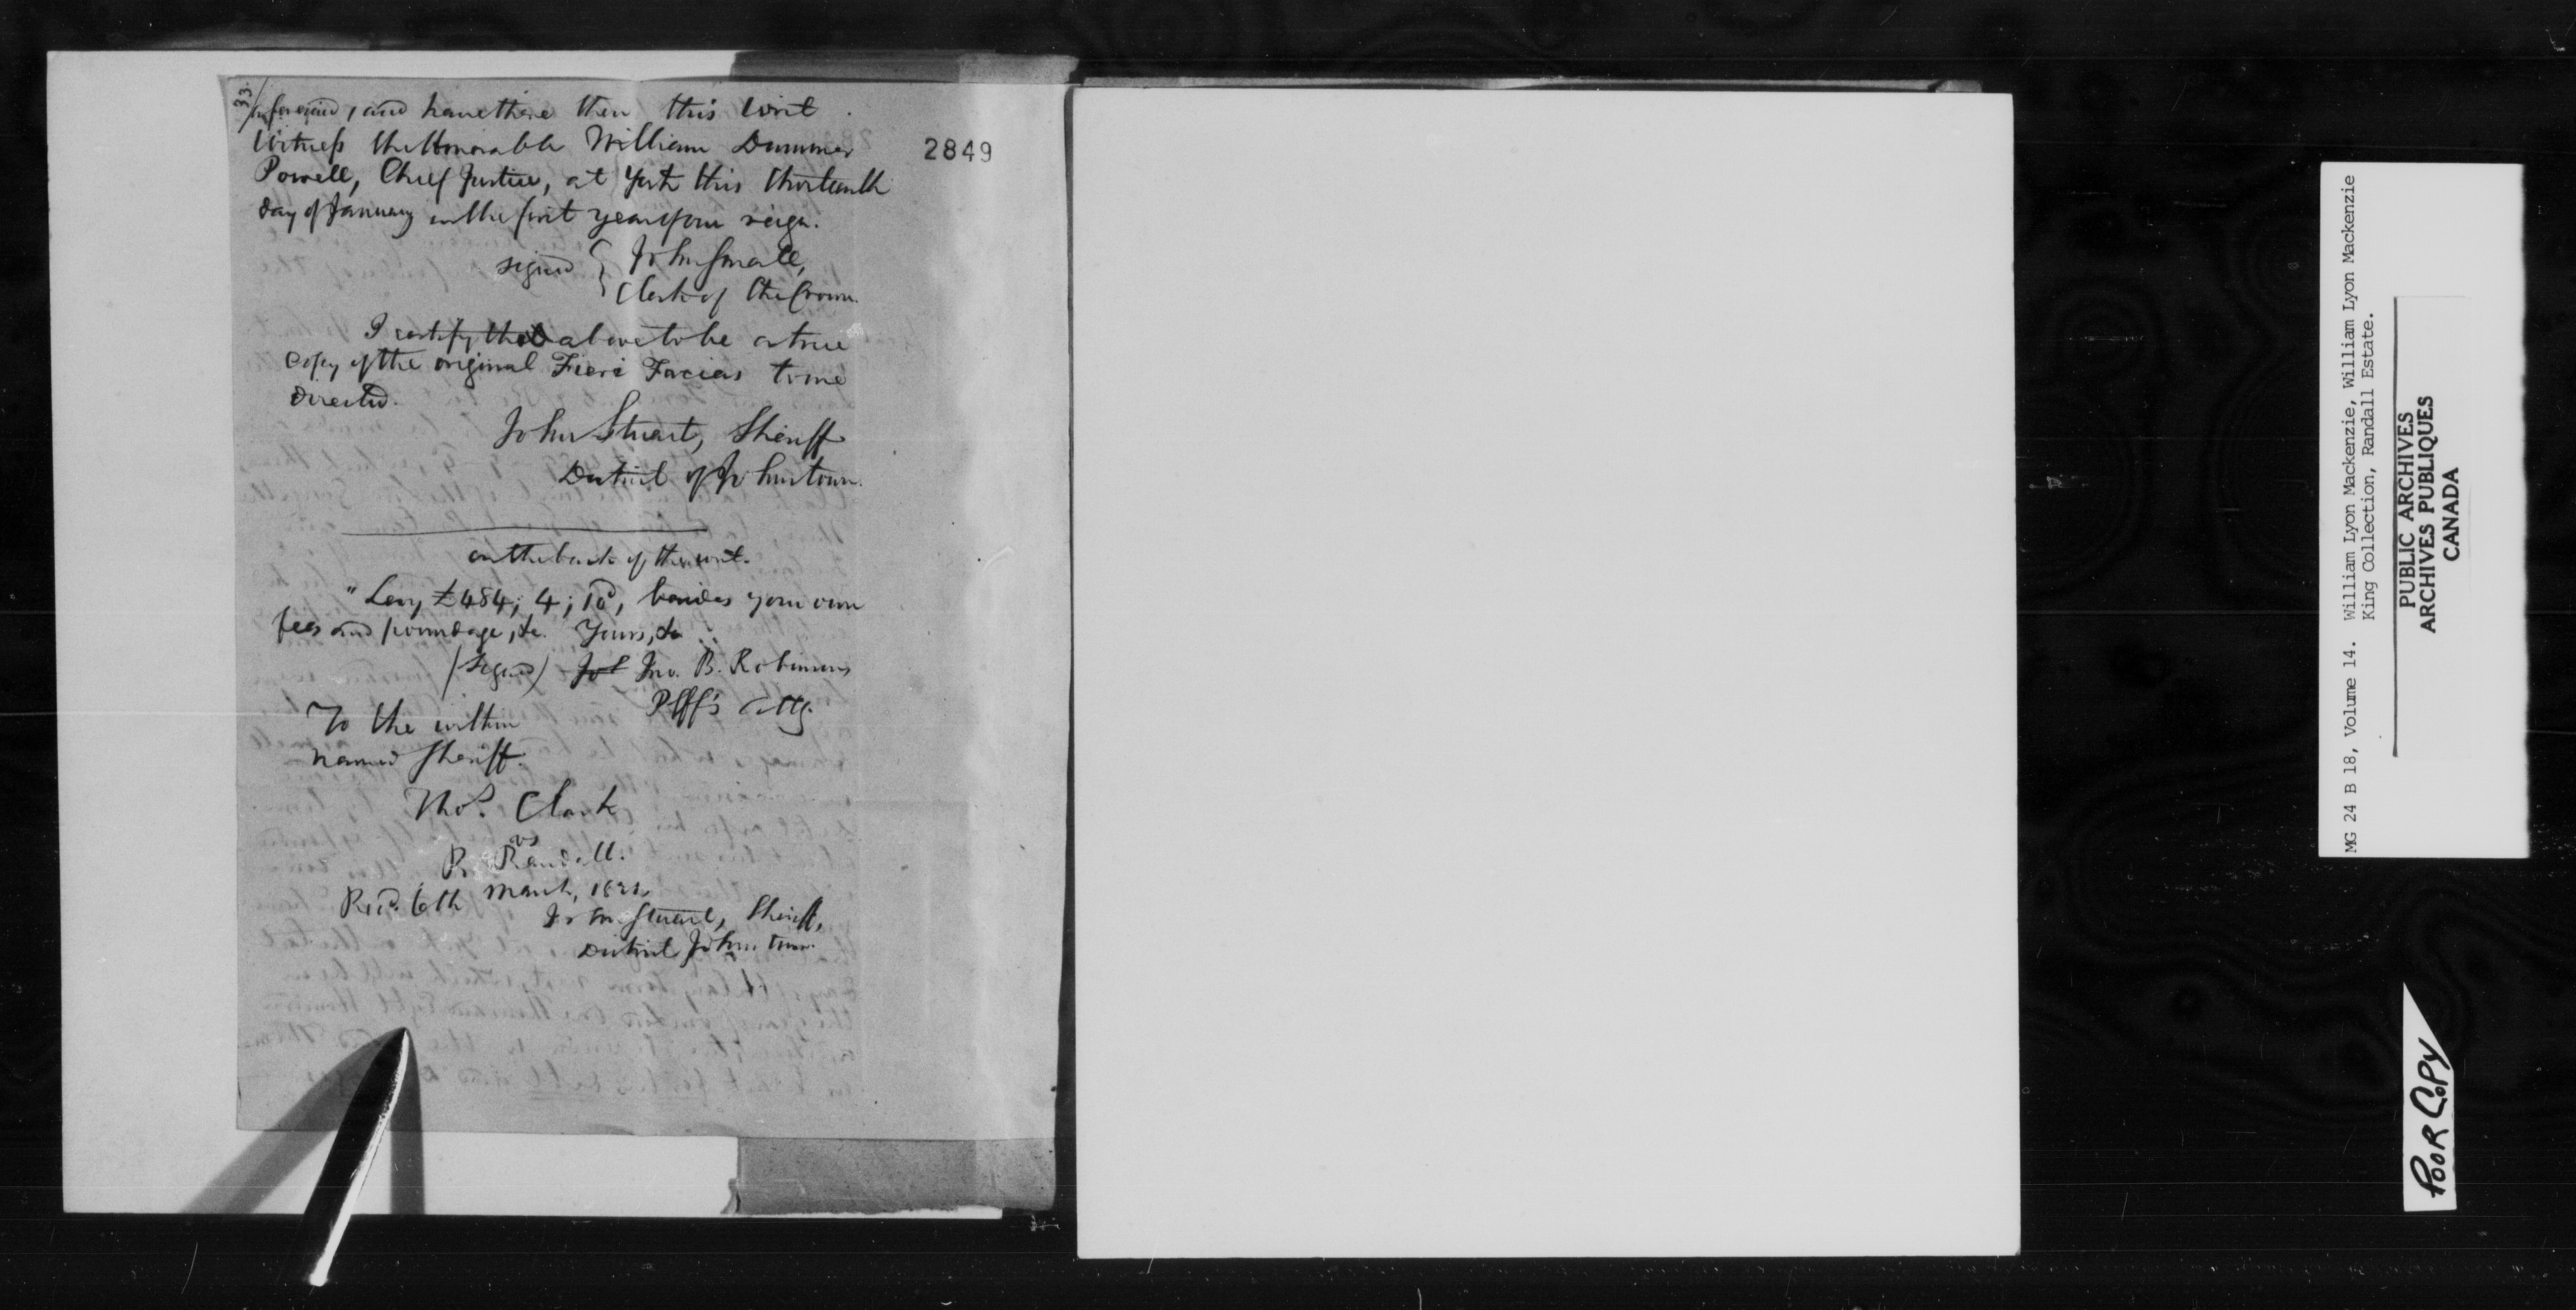 33.
aforesaid, and have there then this writ.
Witness the Honorable William Dummer
Powell, Chief Justice, at York this thirteenth
day of January in the first year of our reign.
signed { John Small,
Clerk of the Crown.
I certify the above to be a true
copy of the original Fieri Facias to me
directed.
John Stuart, Sheriff
District of Johnstown.
on the back of the writ.
"Levy £484; 4; 10d, besides your own
fees and poundage, &c. Yours, &c
(signed) Jno. B. Robinson
Plff's atty.
To the within
named Sheriff.
Thos. Clark
vs
R. Randall.
Recd. 6th March,
John Stuart, Sheriff,
District Johnstown.
2849
MG 24 B 18, Volume 14. William Lyon Mackenzie, William Lyon Mackenzie
King Collection, Randall Estate.
PUBLIC ARCHIVES
ARCHIVES PUBLIQUES
CANADA
POOR COPY